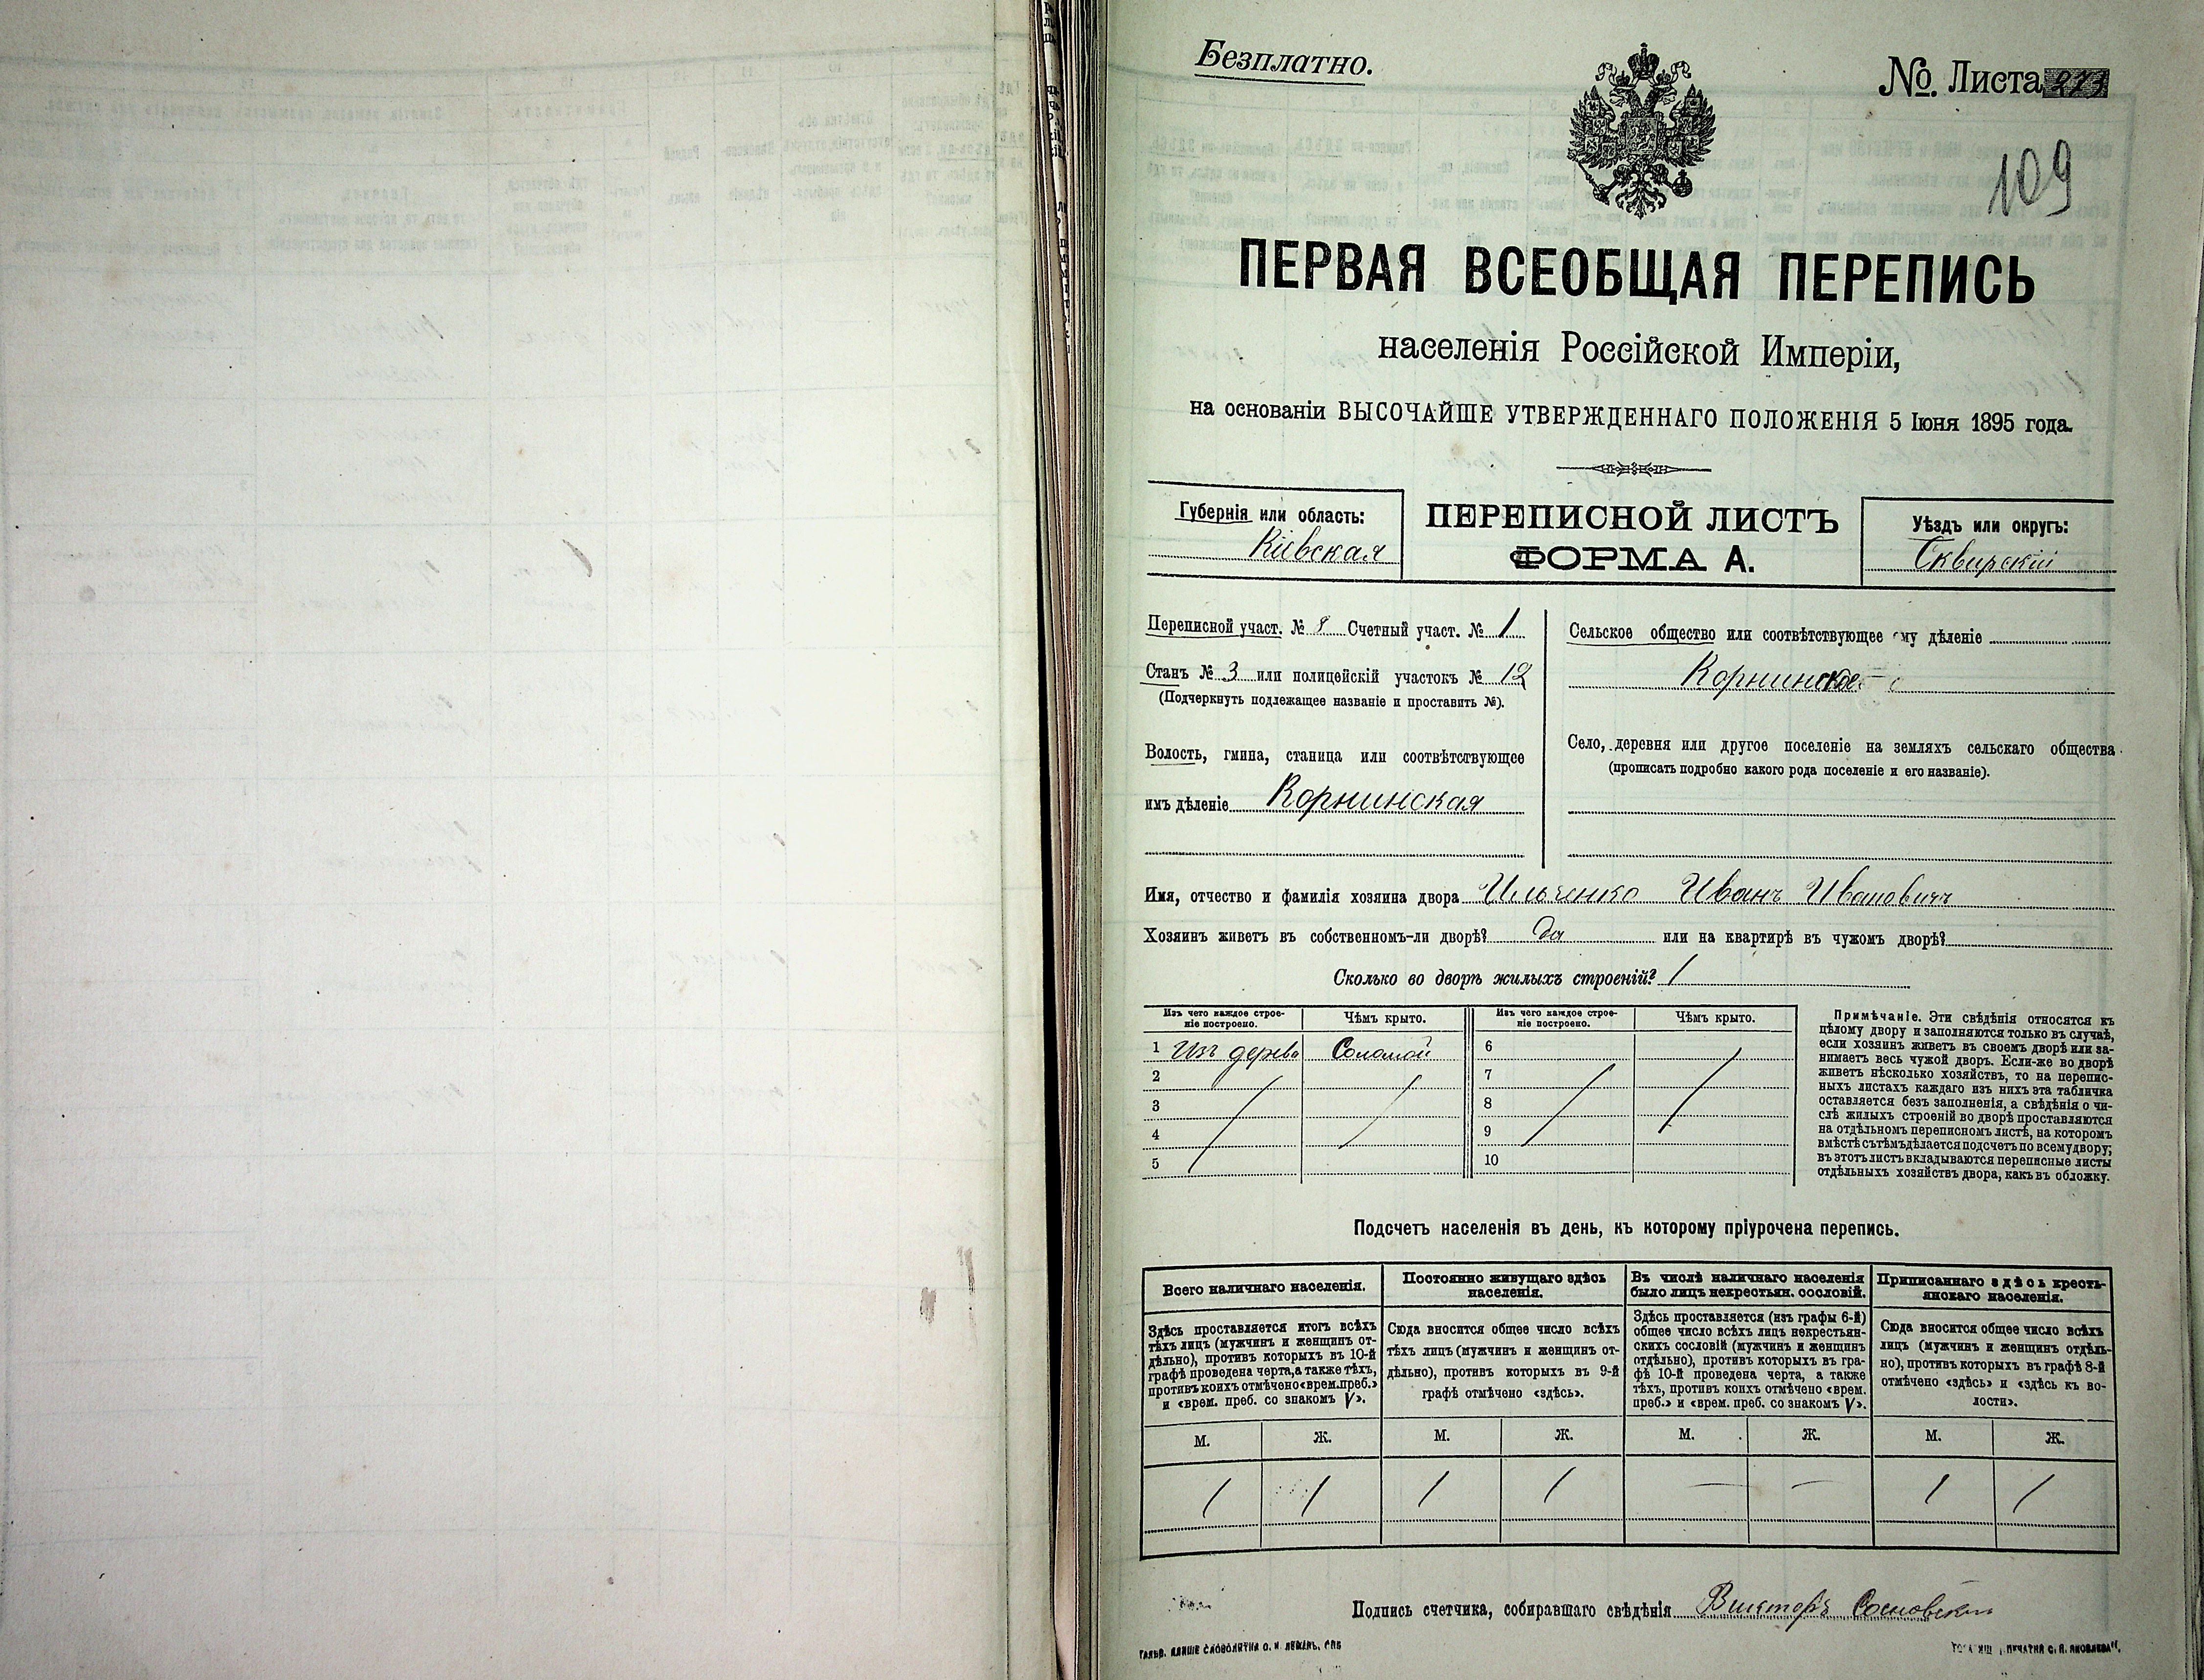 Безплатно.
№ Листа 273
109
ПЕРВАЯ ВСЕОБЩАЯ ПЕРЕПИСЬ
населенія Россійской Имперіи,
на основаніи ВЫСОЧАЙШЕ УТВЕРЖДЕННАГО ПОЛОЖЕНІЯ 5 Іюня 1895 года.
Губернія или область:
Кіевская
ПЕРЕПИСНОЙ ЛИСТЪ
ФОРМА А.
Уѣздъ или округъ:
Сквирскій
Переписной участ. № 8 Счетный участ. № 1
Станъ № 3 или полицейскій участокъ № 12
(Подчеркнуть подлежащее названіе и проставить №).
Волость, гмина, станица или соотвѣтствующее
имъ дѣленіе Корнинская
Сельское общество или соотвѣтствующее ему дѣленіе
Корнинское
Село, деревня или другое поселеніе на земляхъ сельскаго общества
(прописать подробно какого рода поселеніе и его названіе).
Имя, отчество и фамилія хозяина двора Ильченко Иванъ Ивановичъ
Хозяинъ живетъ въ собственномъ-ли дворѣ? да или на квартирѣ въ чужомъ дворѣ?
Сколько во дворѣ жилыхъ строеній? 1
Изъ чего каждое строе-
ніе построено.
Чѣмъ крыто.
Изъ чего каждое строе-
ніе построено.
Чѣмъ крыто.
1 Изъ дерева Соломой 6
2 7
3 8
4 9
5 10
Примѣчаніе. Эти свѣдѣнія относятся къ
цѣлому двору и заполняются только въ случаѣ,
если хозяинъ живетъ въ своемъ дворѣ или за-
нимаетъ весь чужой дворъ. Если-же во дворѣ
живетъ нѣсколько хозяйствъ, то на перепис-
ныхъ листахъ каждаго изъ нихъ эта табличка
оставляется безъ заполненія, а свѣдѣнія о чи-
слѣ жилыхъ строеній во дворѣ проставляются
на отдѣльномъ переписномъ листѣ, на которомъ
вмѣстѣ съ тѣмъ дѣлается подсчетъ по всему двору;
въ этотъ листъ вкладываются переписные листы
отдѣльныхъ хозяйствъ двора, какъ въ обложку.
Подсчетъ населенія въ день, къ которому пріурочена перепись.
Всего наличнаго населенія.
Здѣсь проставляется итогъ всѣхъ
тѣхъ лицъ (мужчинъ и женщинъ от-
дѣльно), противъ которыхъ въ 10-й
графѣ проведена черта, а также тѣхъ,
противъ коихъ отмѣчено «врем. преб.»
и «врем. преб. со знакомъ V».
Постоянно живущаго здѣсь
населенія.
Сюда вносится общее число всѣхъ
тѣхъ лицъ (мужчинъ и женщинъ от-
дѣльно), противъ которыхъ въ 9-й
графѣ отмѣчено «здѣсь».
Въ числѣ наличнаго населенія
было лицъ некрестьян. сословій.
Здѣсь проставляется (изъ графы 6-й)
общее число всѣхъ лицъ некрестьян-
скихъ сословій (мужчинъ и женщинъ
отдѣльно), противъ которыхъ въ гра-
фѣ 10-й проведена черта, а также
тѣхъ, противъ коихъ отмѣчено «врем.
преб.» и «врем. преб. со знакомъ V».
Приписаннаго здѣсь кресть-
янскаго населенія.
Сюда вносится общее число всѣхъ
лицъ (мужчинъ и женщинъ отдѣль-
но), противъ которыхъ въ графѣ 8-й
отмѣчено «здѣсь» и «здѣсь къ во-
лости».
М. Ж. М. Ж. М. Ж. М. Ж.
1 1 1 1 — — 1 1
Подпись счетчика, собиравшаго свѣдѣнія Викторъ Сосновскій